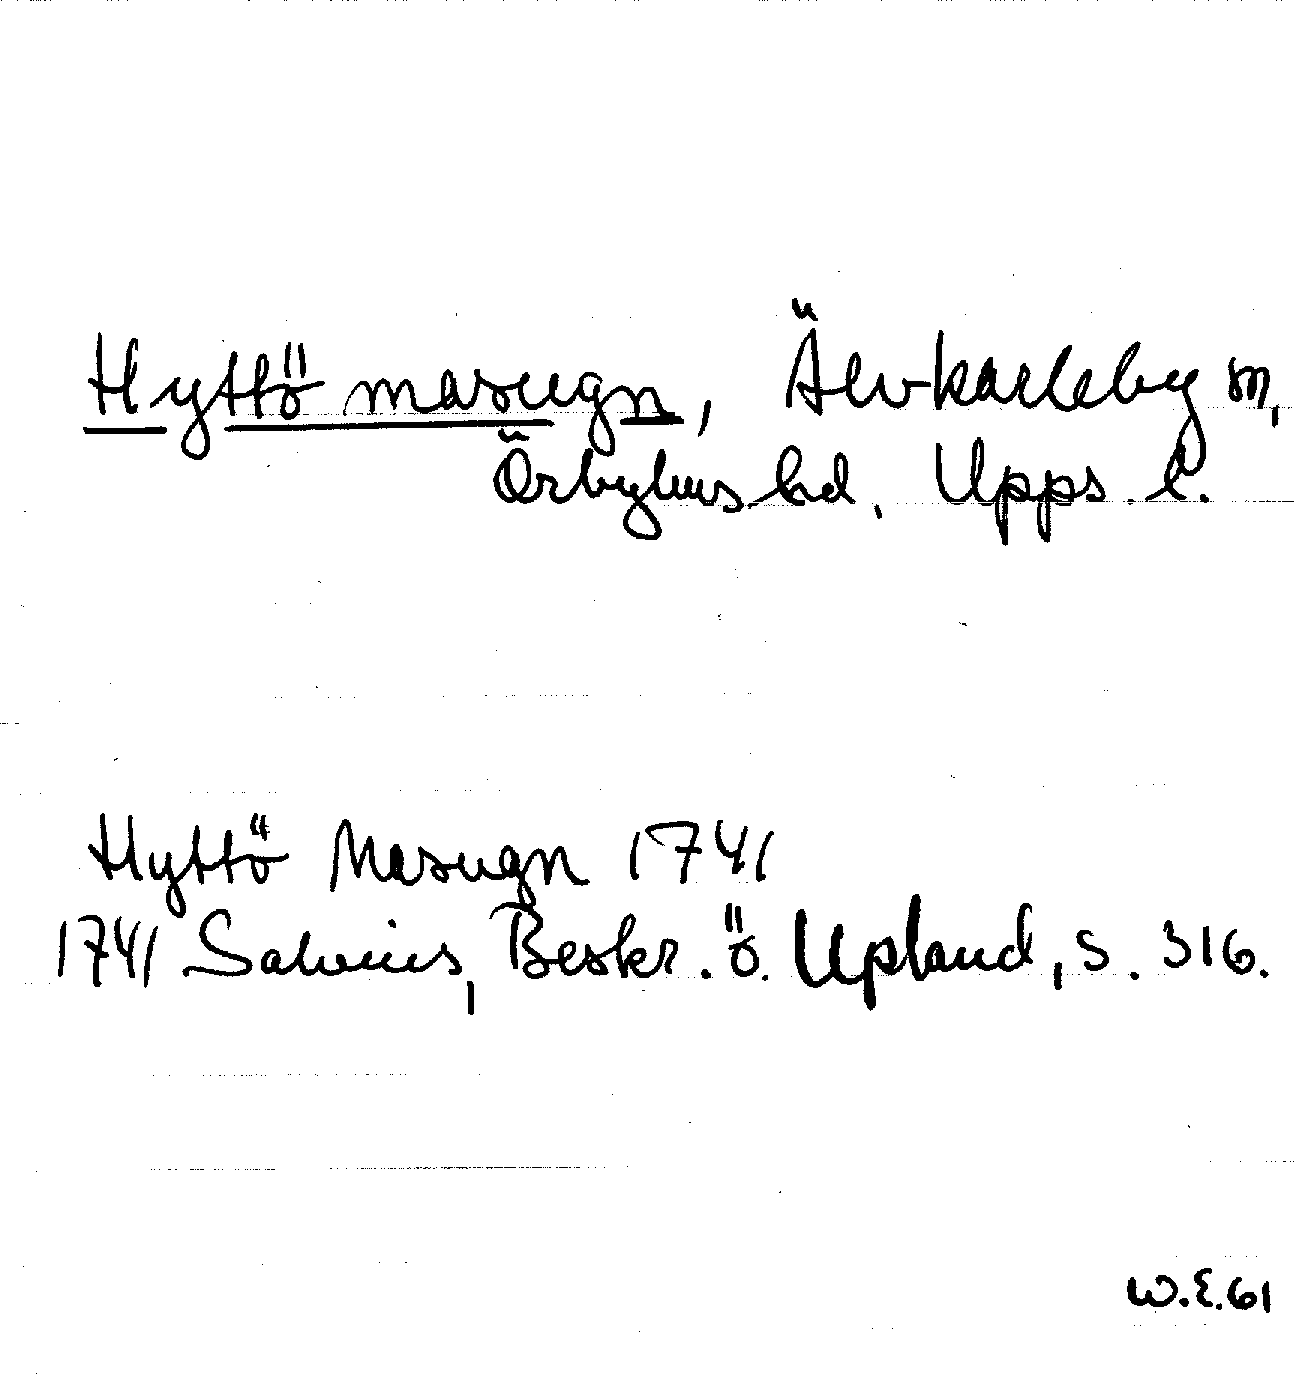 Hyttö masugn, Älvkarleby sn,
Örbyhus hd, Upps. l.
Hyttö Masugn 1741
1741 Salvius, Beskr. ö. Upland, s. 316.
W.E.61